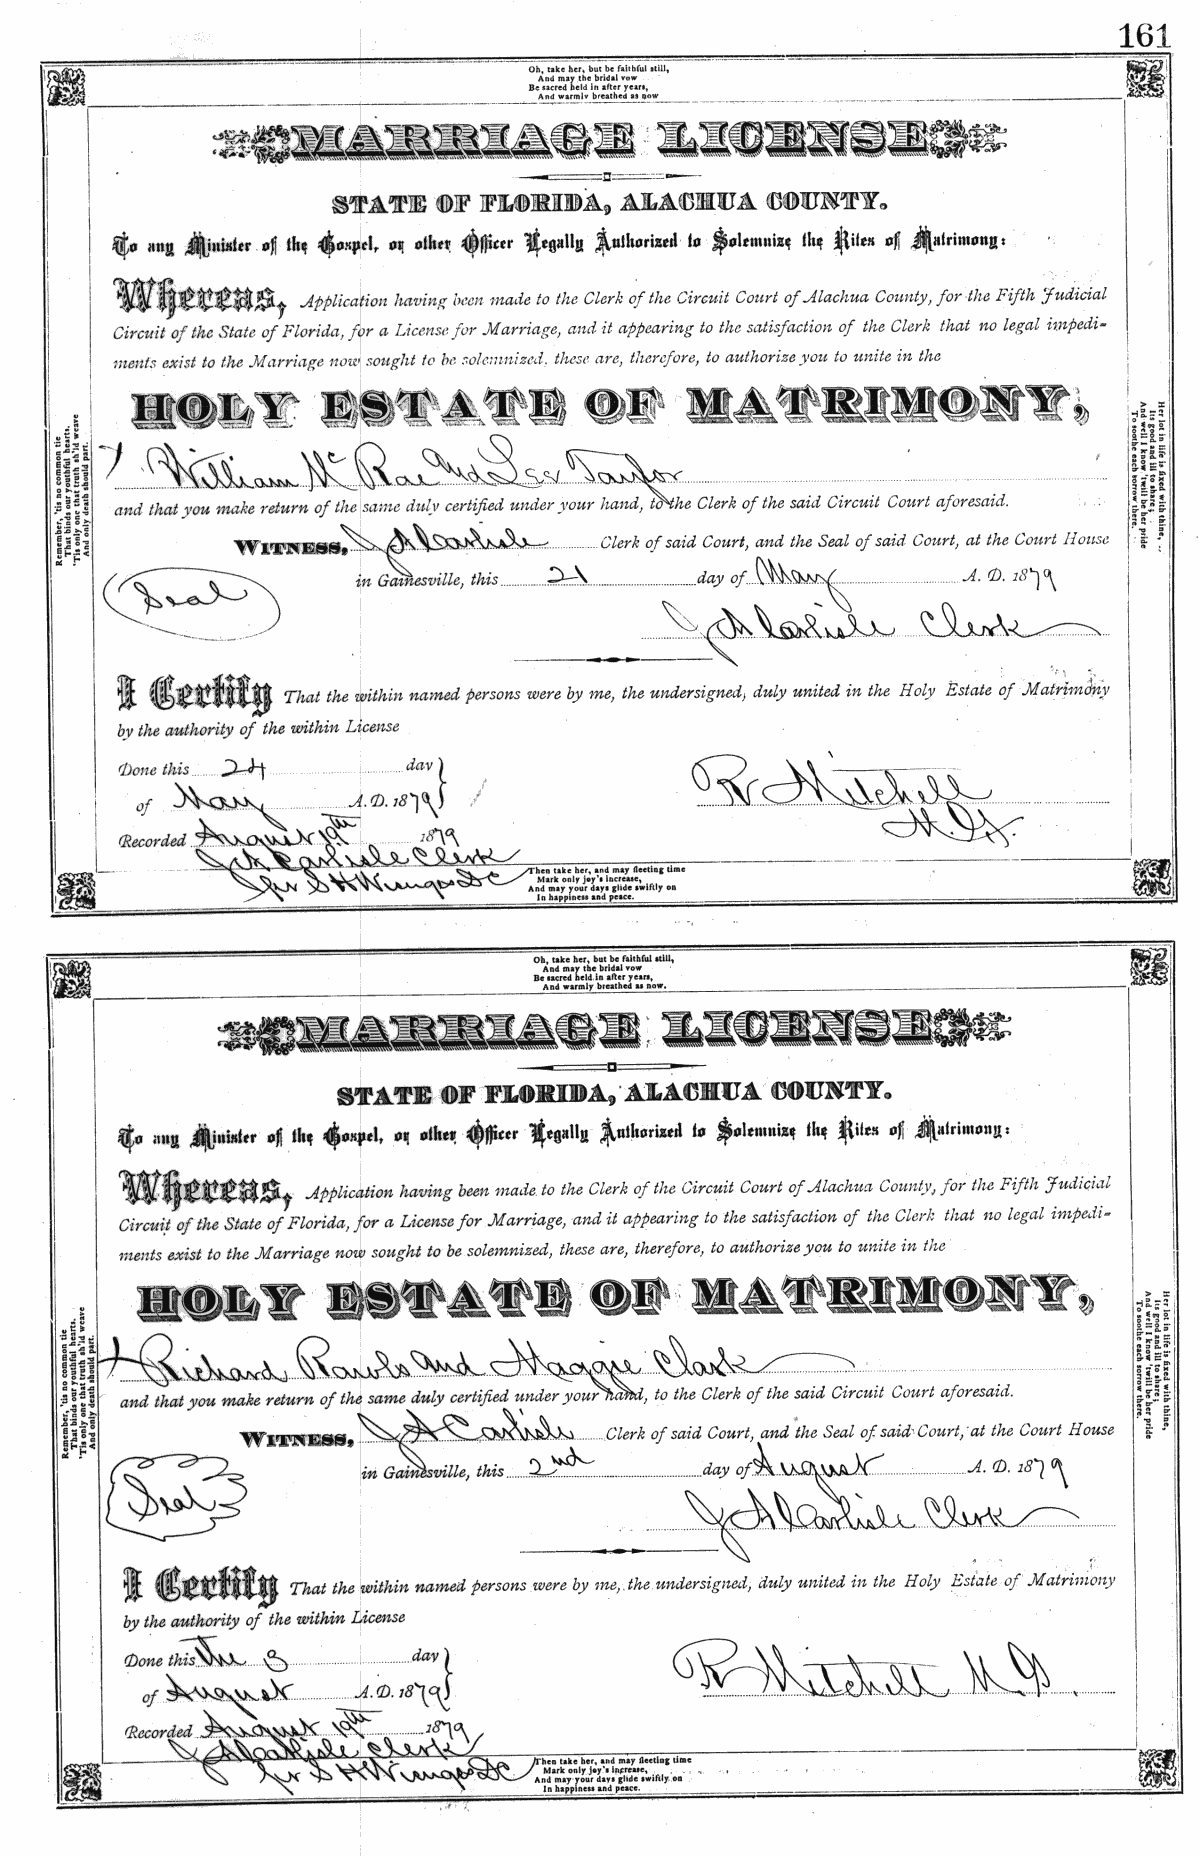 161
Oh, take her, but be faithful still,
And may the bridal vow
Be sacred held in after years,
And warmly breathed as now
MARRIAGE LICENSE
STATE OF FLORIDA, ALACHUA COUNTY.
To any Minister of the Gospel, or other Officer Legally Authorized to Solemnize the Rites of Matrimony:
Whereas, Application having been made to the Clerk of the Circuit Court of Alachua County, for the Fifth Judicial
Circuit of the State of Florida, for a License for Marriage, and it appearing to the satisfaction of the Clerk that no legal impedi-
ments exist to the Marriage now sought to be solemnized, these are, therefore, to authorize you to unite in the
HOLY ESTATE OF MATRIMONY,
William Mc Rae and Lee Taylor
and that you make return of the same duly certified under your hand, to the Clerk of the said Circuit Court aforesaid.
WITNESS, J A Carlisle Clerk of said Court, and the Seal of said Court, at the Court House
in Gainesville, this 21 day of May A. D. 1879
Seal
J A Carlisle Clerk
I Certify That the within named persons were by me, the undersigned, duly united in the Holy Estate of Matrimony
by the authority of the within License
Done this 24 day
of May A. D. 1879
R Mitchell
M. G.
Recorded August 19th 1879
J A Carlisle Clerk
Remember, 'tis no common tie
That binds our youthful hearts,
'Tis only one that truth sh'ld weave
And only death should part.
Her lot in life is fixed with thine,
its good and ill to share;
And well I know 'twill be her pride
To soothe each sorrow there.
Then take her, and may fleeting time
Mark only joy's increase,
And may your days glide swiftly on
In happiness and peace.
Oh, take her, but be faithful still,
And may the bridal vow
Be sacred held in after years,
And warmly breathed as now.
MARRIAGE LICENSE
STATE OF FLORIDA, ALACHUA COUNTY.
To any Minister of the Gospel, or other Officer Legally Authorized to Solemnize the Rites of Matrimony:
Whereas, Application having been made to the Clerk of the Circuit Court of Alachua County, for the Fifth Judicial
Circuit of the State of Florida, for a License for Marriage, and it appearing to the satisfaction of the Clerk that no legal impedi-
ments exist to the Marriage now sought to be solemnized, these are, therefore, to authorize you to unite in the
HOLY ESTATE OF MATRIMONY,
Richard Rawls and Maggie Clark
and that you make return of the same duly certified under your hand, to the Clerk of the said Circuit Court aforesaid.
WITNESS, J A Carlisle Clerk of said Court, and the Seal of said Court, at the Court House
in Gainesville, this 2nd day of August A. D. 1879
Seal
J A Carlisle Clerk
I Certify That the within named persons were by me, the undersigned, duly united in the Holy Estate of Matrimony
by the authority of the within License
Done this The 3 day
of August A. D. 1879
R Mitchell M. G.
Recorded August 19th 1879
J A Carlisle Clerk
Remember, 'tis no common tie
That binds our youthful hearts,
'Tis only one that truth sh'ld weave
And only death should part.
Her lot in life is fixed with thine,
its good and ill to share;
And well I know 'twill be her pride
To soothe each sorrow there.
Then take her, and may fleeting time
Mark only joy's increase,
And may your days glide swiftly on
In happiness and peace.